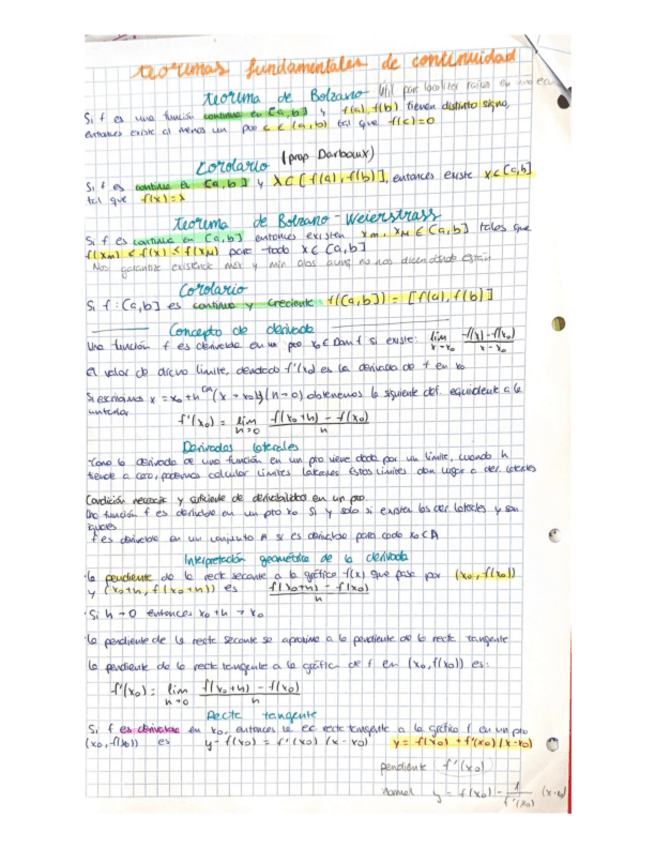 teoremas fundamentales de continuidad
Teorema de Bolzano - Útil para localizar raíces en una ec
Si f es una función continua en [a,b] y f(a), f(b) tienen distinto signo,
entonces existe al menos un pto c ∈ (a,b) tal que f(c)=0
Corolario (prop Darboux)
Si f es continua en [a,b] y λ∈[f(a),f(b)], entonces existe x∈[a,b]
tal que f(x)=λ
Teorema de Bolzano-Weierstrass
Si f es continua en [a,b] entonces existen xm, xM ∈ [a,b] tales que
f(xm) ≤ f(x) ≤ f(xM) para todo x∈[a,b]
Nos garantiza existencia máx y mín abs aunq no nos dicen donde están
Corolario
Si f:[a,b] es continua y creciente f([a,b]) = [f(a),f(b)]
Concepto de derivada
Una función f es derivable en un pto x0∈Dom f si existe: lim x→x0 f(x)-f(x0) / x-x0
el valor de dicho límite, denotado f'(x0) es la derivada de f en x0
Si escribimos x = x0+h con (x→x0)(h→0) obtenemos la siguiente def. equivalente a la
anterior
f'(x0) = lim h→0 f(x0+h) - f(x0) / h
Derivadas laterales
-Como la derivada de una función en un pto viene dada por un límite, cuando h
tiende a cero, podemos calcular límites laterales. Estos límites dan lugar a der. laterales
Condición necesaria y suficiente de derivabilidad en un pto.
Una función f es derivable en un pto x0 si y solo si existen las der laterales y son
iguales
f es derivable en un conjunto A si es derivable para cada x0∈A
Interpretación geométrica de la derivada
·La pendiente de la recta secante a la gráfica f(x) que pasa por (x0,f(x0))
y (x0+h, f(x0+h)) es f(x0+h) - f(x0) / h
·Si h→0 entonces x0+h → x0
·la pendiente de la recta secante se aproxima a la pendiente de la recta tangente
la pendiente de la recta tangente a la gráfica de f en (x0,f(x0)) es:
f'(x0) = lim h→0 f(x0+h) - f(x0) / h
Recta tangente
Si f es derivable en x0, entonces la ec recta tangente a la gráfica f en un pto
(x0,f(x0)) es y-f(x0) = f'(x0)(x-x0) y = f(x0) + f'(x0)(x-x0)
pendiente f'(x0)
normal y = f(x0) - 1/f'(x0) (x-x0)